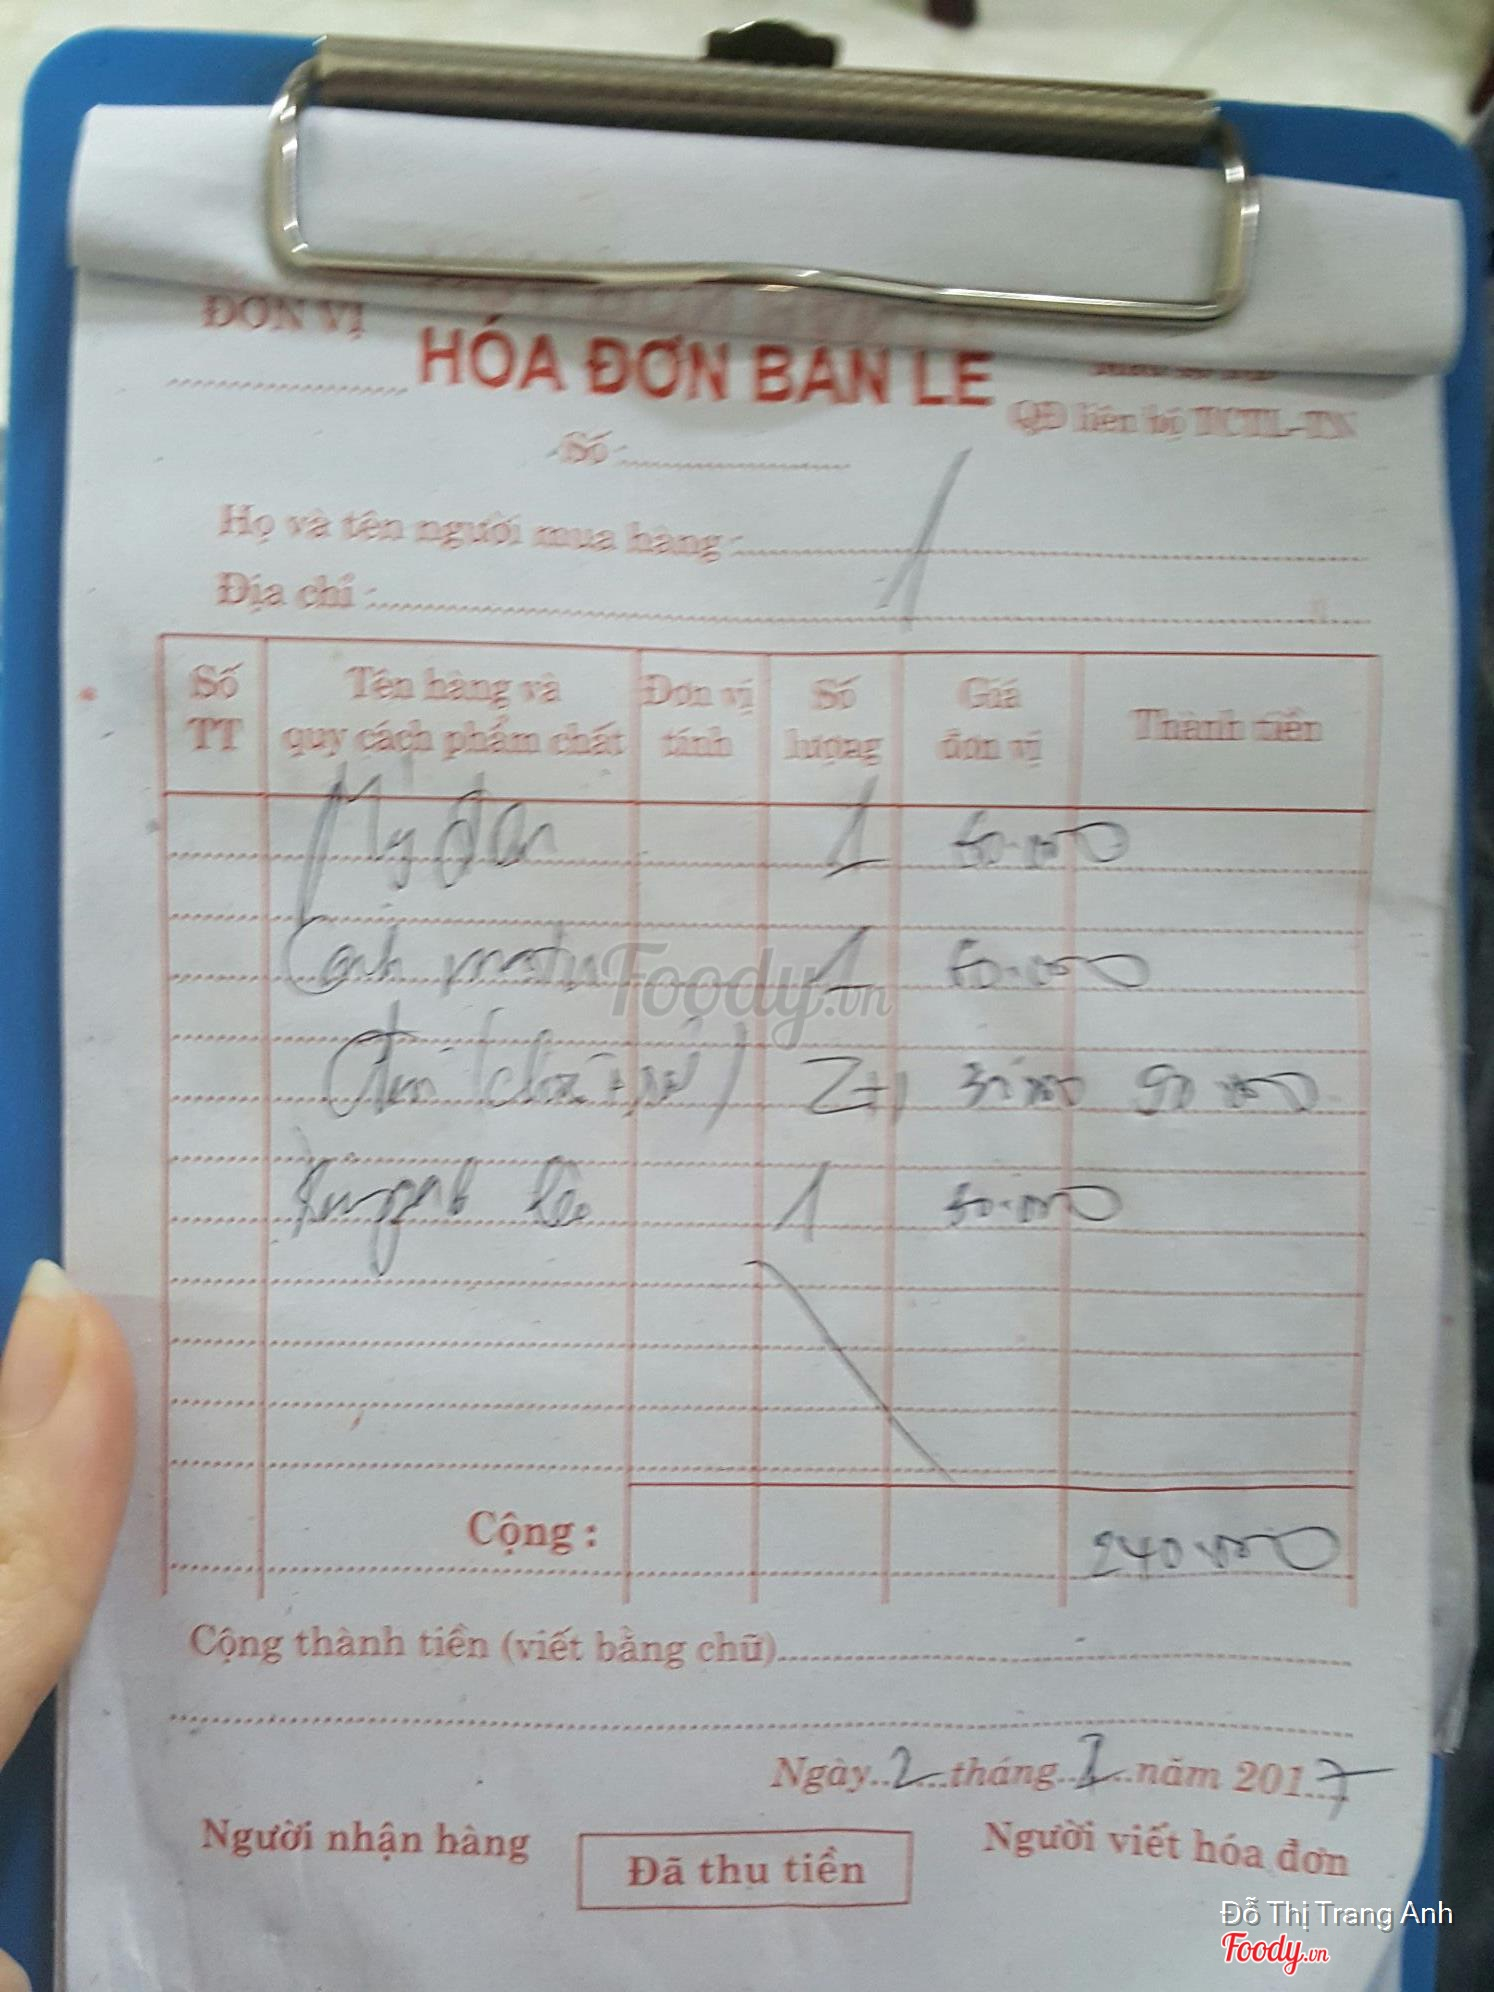 ĐƠN VỊ
HÓA ĐƠN BÁN LẺ
QĐ liên bộ TCTL-TN
Số
Họ và tên người mua hàng :
Địa chỉ :
1
Số TT
Tên hàng và quy cách phẩm chất
Đơn vị tính
Số lượng
Giá đơn vị
Thành tiền
Mỳ đen 1 50.000
Canh 1 50.000
2+1 30.000 90.000
1 50.000
Cộng : 240.000
Cộng thành tiền (viết bằng chữ)
Ngày 2 tháng 1 năm 2017
Người nhận hàng
Đã thu tiền
Người viết hóa đơn
Foody.vn
Đỗ Thị Trang Anh
Foody.vn